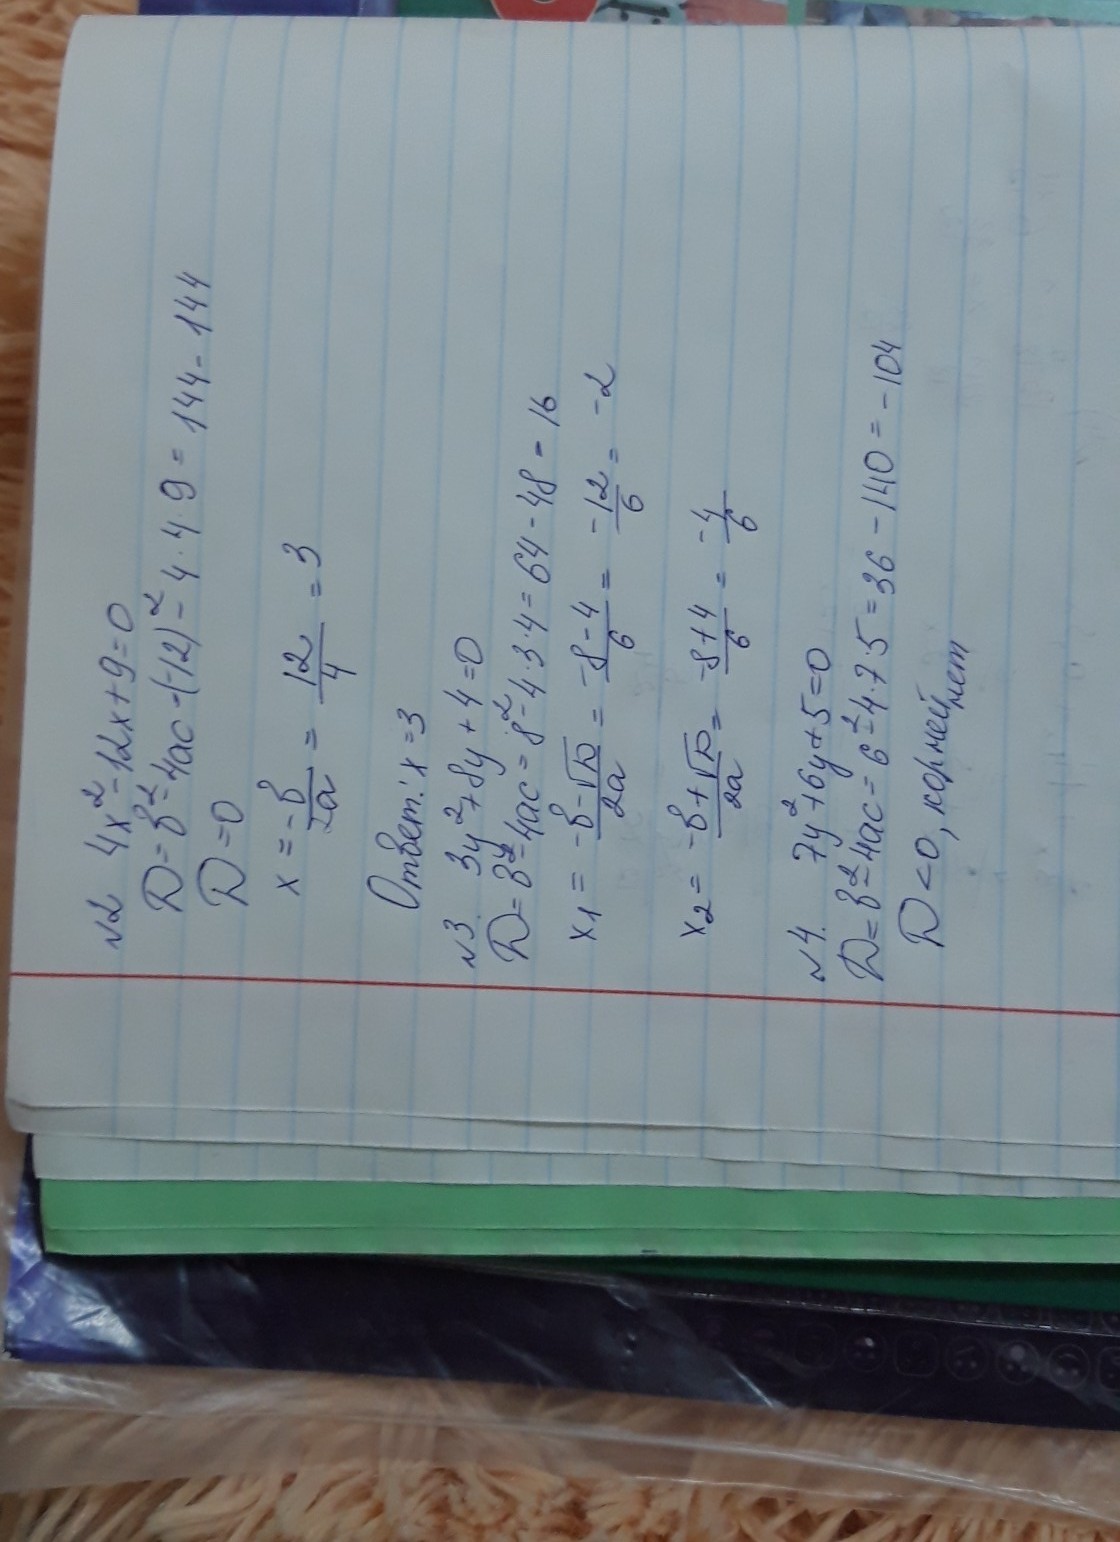 №2 4x²-12x+9=0
D=b²-4ac=(-12)²-4·4·9=144-144
D=0
x=-b/2a=12/4=3
Ответ: x=3
№3. 3y²+8y+4=0
D=b²-4ac=8²-4·3·4=64-48=16
x₁=-b-√D/2a=-8-4/6=-12/6=-2
x₂=-b+√D/2a=-8+4/6=-4/6
№4. 7y²+6y+5=0
D=b²-4ac=6²-4·7·5=36-140=-104
D<0, корней нет